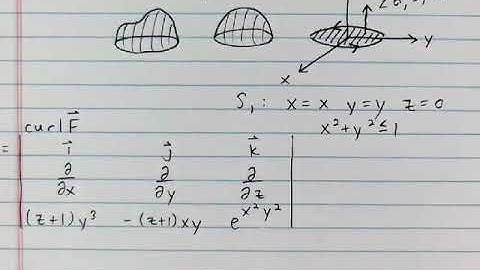 y
x
S₁: x = x y = y z = 0
x² + y² ≤ 1
curl F⃗
= | i⃗ j⃗ k⃗ |
∂/∂x ∂/∂y ∂/∂z
(z+1)y³ -(z+1)xy e^(x²y²)